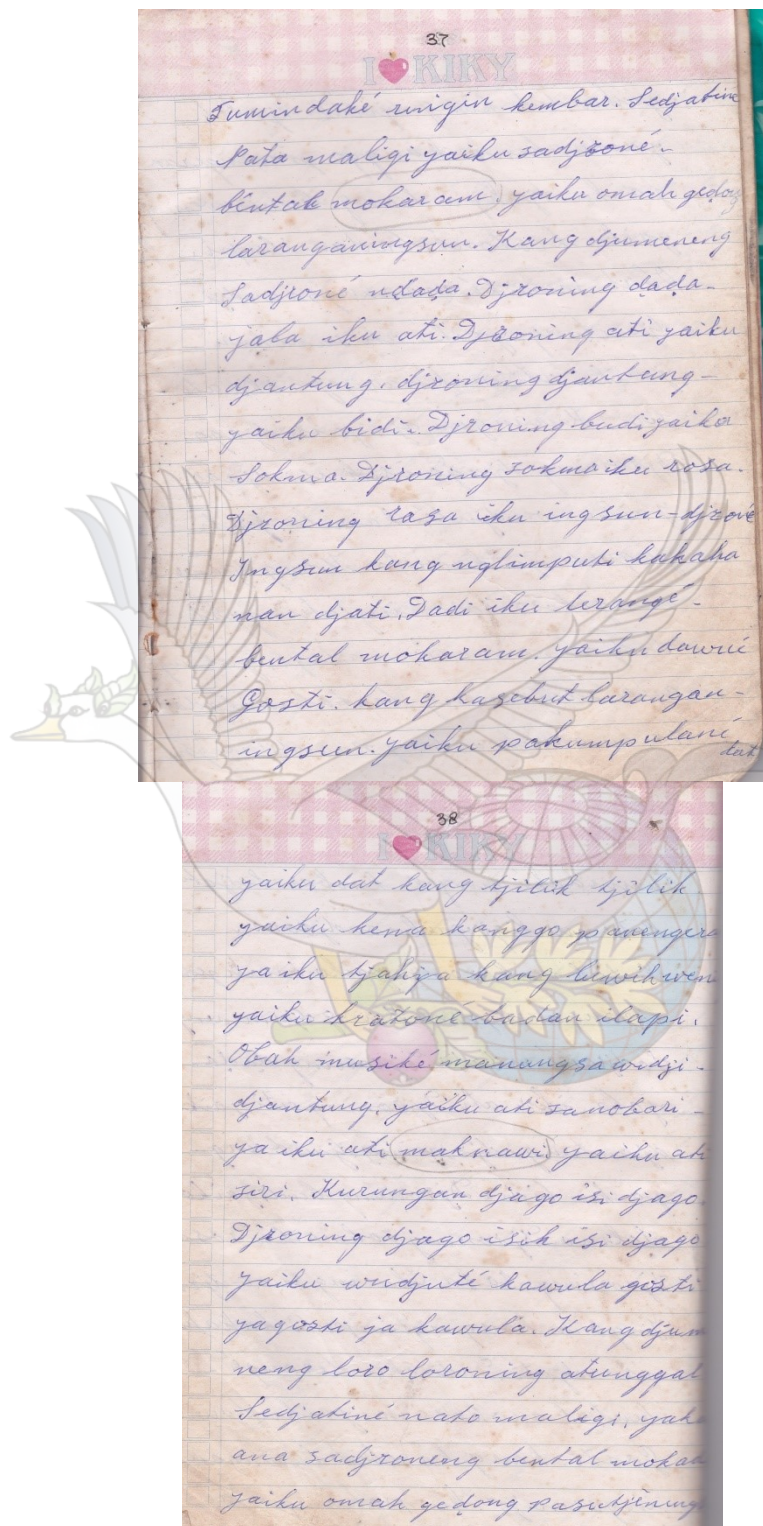 37
I KIKY
Tumindaké ringin kembar. Sedjatine
Nata maligi yaiku sadjroné.
bèntal mokaram. yaiku omah gedong
laranganingsun. Kang djumeneng
Sadjroné ndada. Djroning dada-
jaba iku ati. Djroning ati yaiku
djantung. djroning djantung-
yaiku bidi. Djroning budi yaiku
Sokma. Djroning sokma iku rosa.
Djroning rasa iku ingsun-djroné
Ingsun kang nglimputi kahaha
nan djati. Dadi iku terangé-
bental mokaram. yaiku dawué
Gosti. kang kasebut larangan-
ingsun. yaiku pakumpulané
dat
38
I KIKY
yaiku dat kang tjilik tjilik
yaiku kema kanggo panengera
yaiku tjahya kang luwih wen
yaiku kratoné badan ilapi.
Obah musiké manungsa widji-
djantung. yaiku ati sanobari-
yaiku ati maknawi. yaiku ati
siri. Kurungan djago isi djago.
Djroning djago isih isi djago
yaiku wudjuté kawula gosti
ya gosti ja kawula. Kang djum
neng loro loroning atunggal
Sedjatiné nato maligi, yak
ana sadjroneng bental mokad
yaiku omah gedong pasutjèning